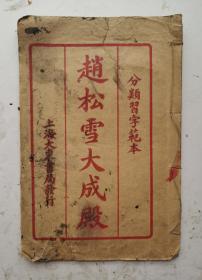 分類習字範本
趙松雪大成殿
上海大東書局發行